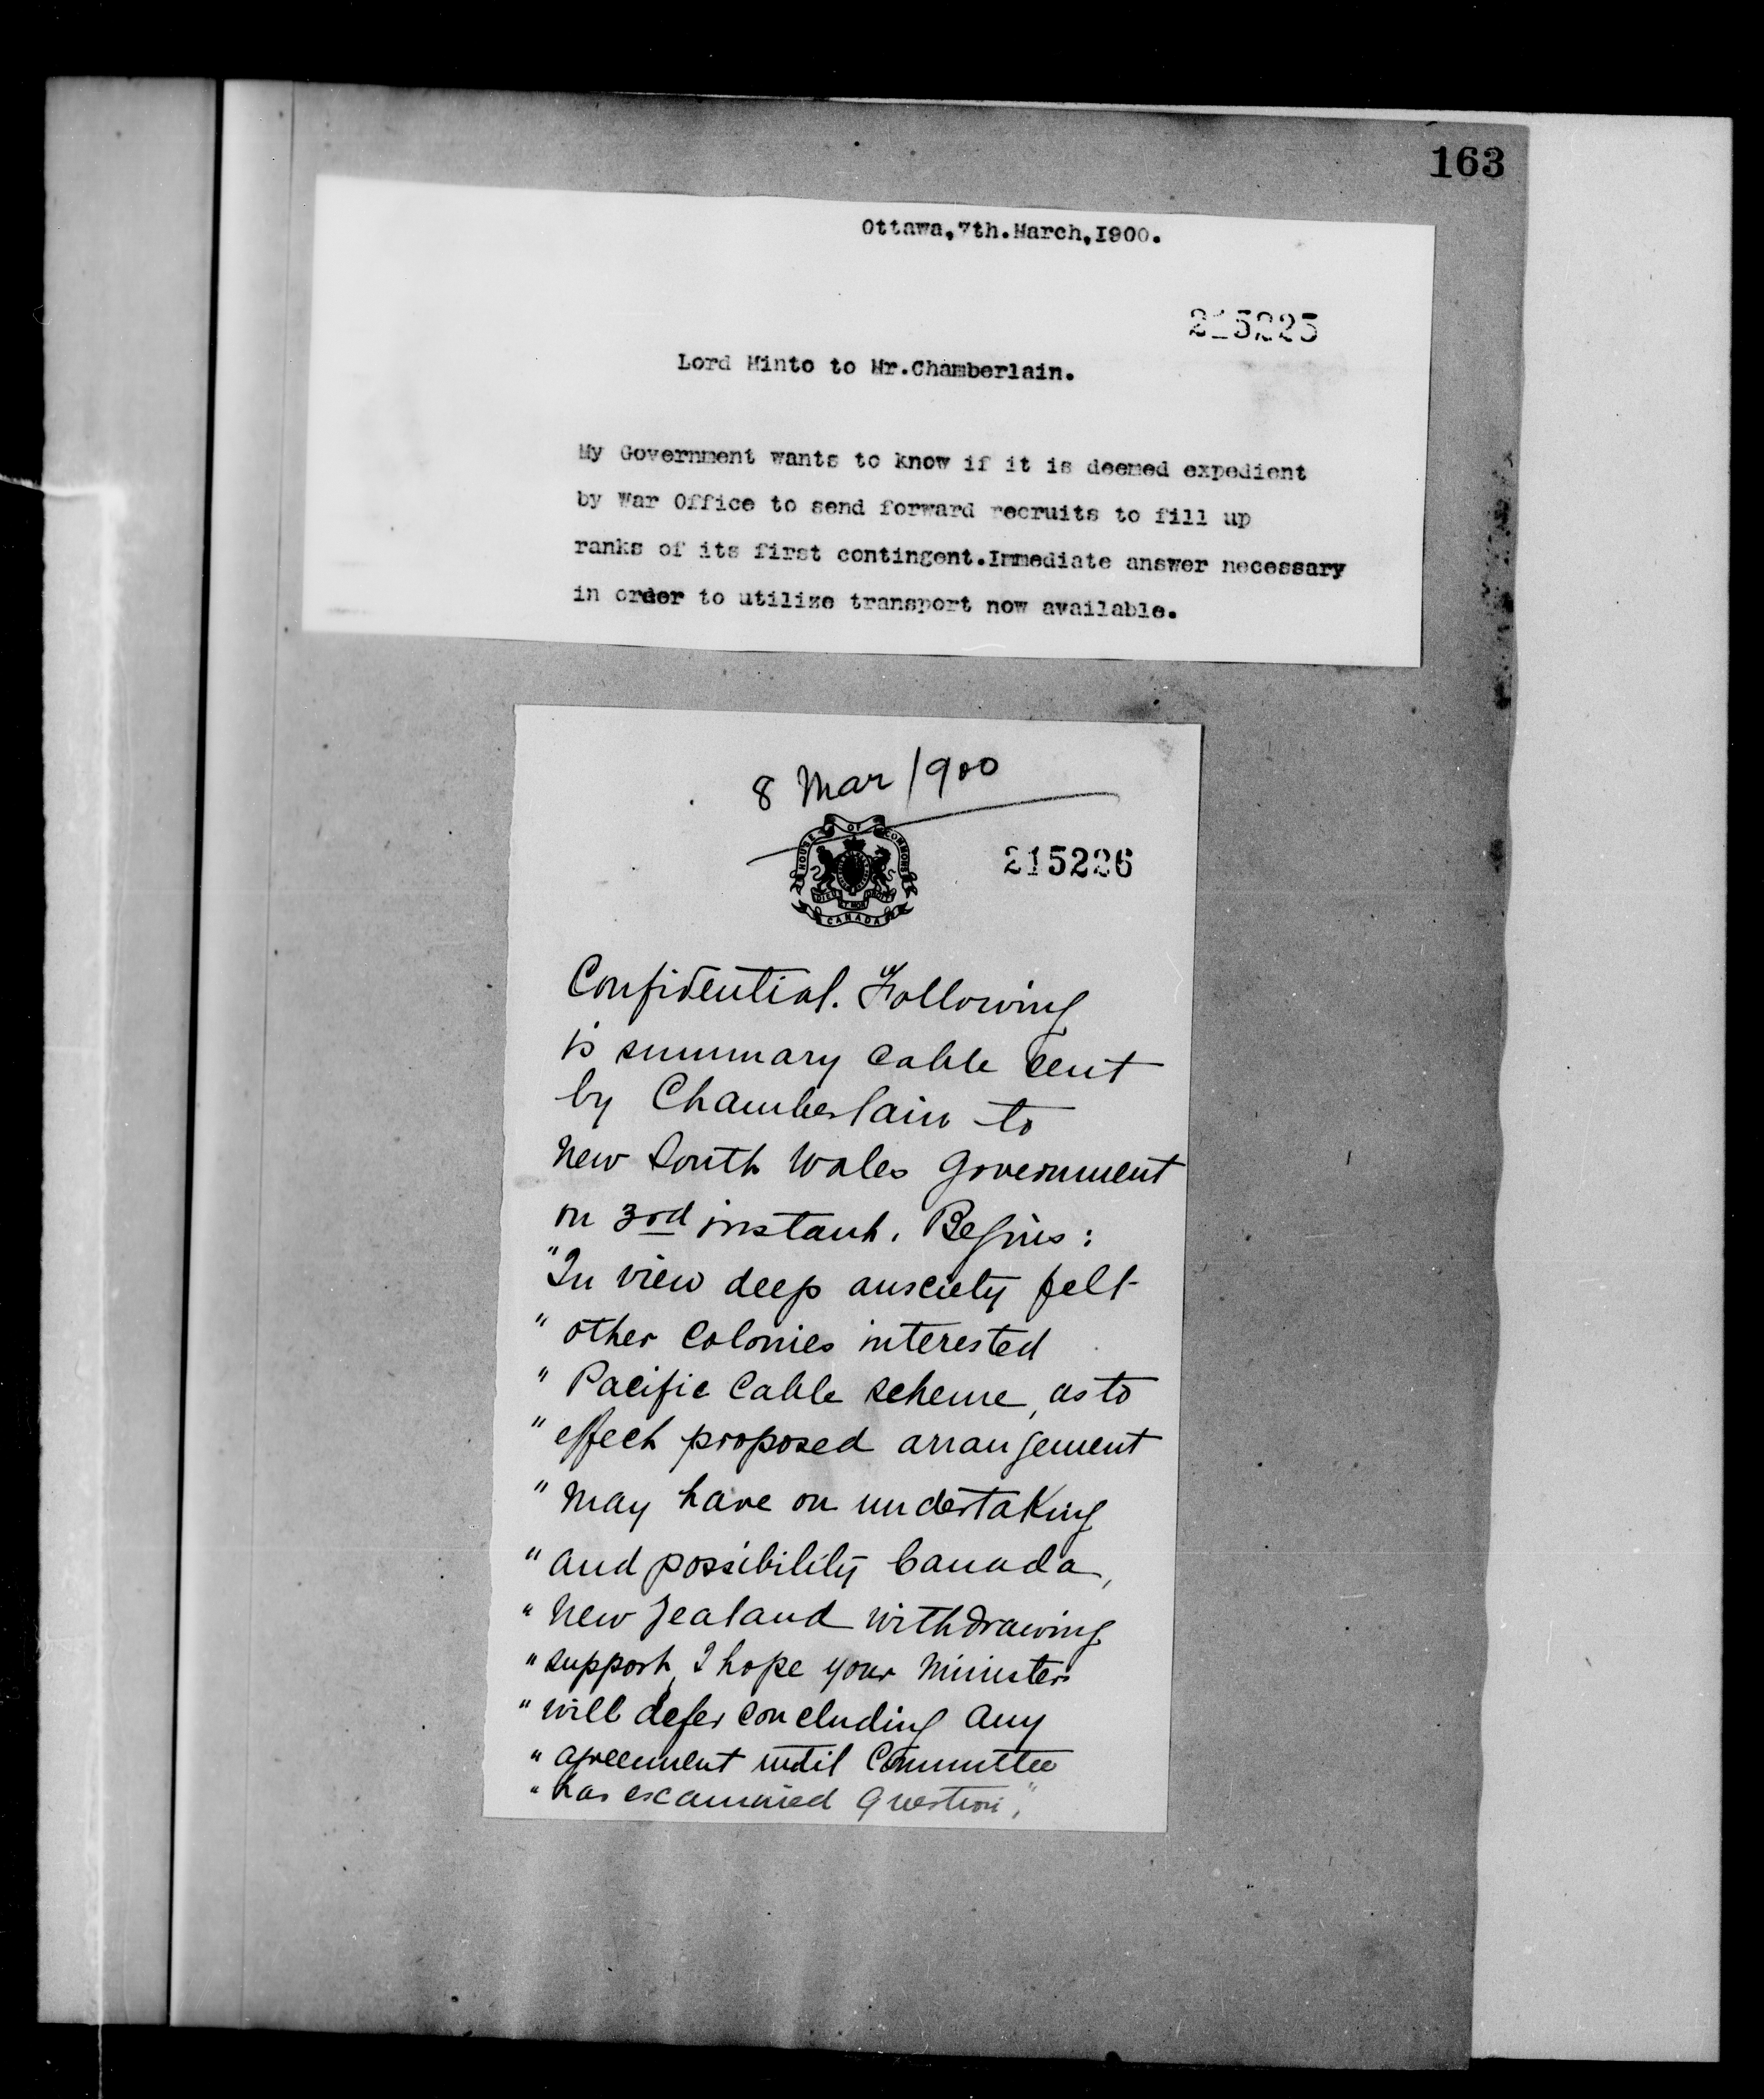 163
Ottawa,7th.March,1900.
215225
Lord Minto to Mr.Chamberlain.
My Government wants to know if it is deemed expedient
by War Office to send forward recruits to fill up
ranks of its first contingent.Immediate answer necessary
in order to utilize transport now available.
8 Mar 1900
HOUSE OF COMMONS
CANADA
215226
Confidential. Following
is summary cable sent
by Chamberlain to
New South Wales Government
on 3rd instant. Begins:
"In view deep anxiety felt
" other Colonies interested
" Pacific Cable scheme, as to
" effect proposed arrangement
" may have on undertaking
" and possibility Canada,
" New Zealand withdrawing
" support, I hope your Ministers
" will defer concluding any
" agreement until Committee
" has examined question."